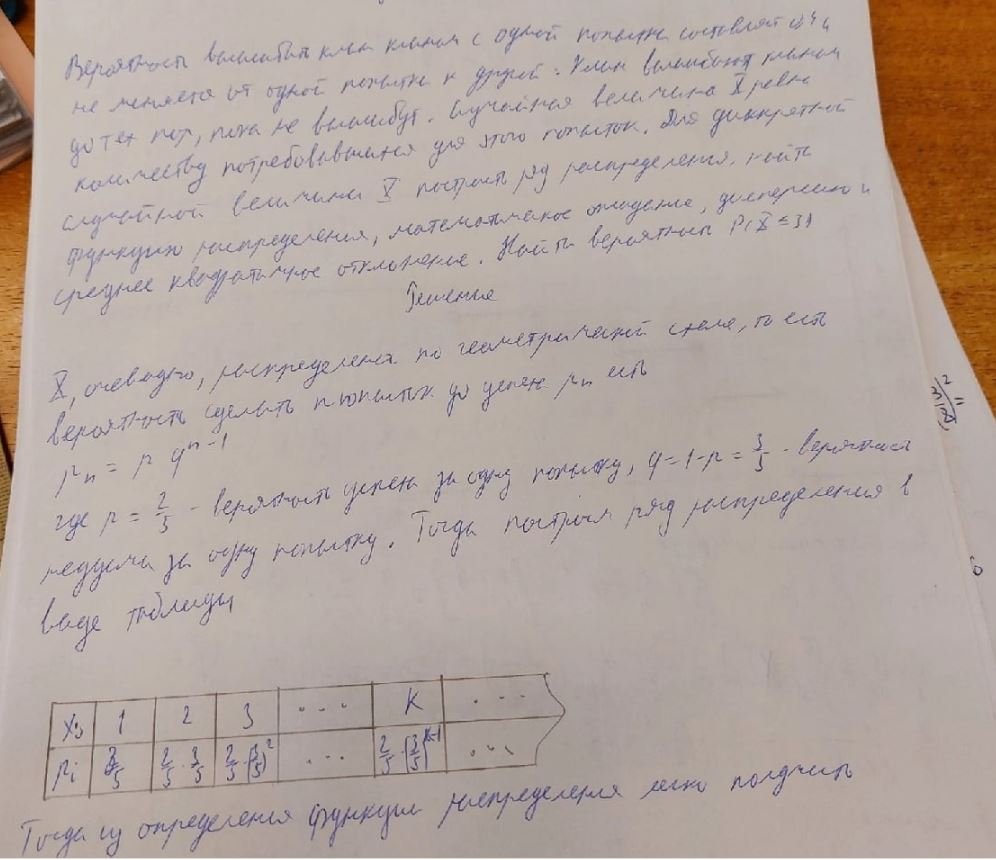 Вероятность вышибить клин клином с одной попытки составляет 0,4 и
не меняется от одной попытки к другой. Клин вышибают клином
до тех пор, пока не вышибут. Случайная величина X равна
количеству потребовавшихся для этого попыток. Для дискретной
случайной величины X построить ряд распределения. найти
функцию распределения, математическое ожидание, дисперсию и
среднее квадратичное отклонение. Найти вероятность P(X ≤ 3)
Решение
X, очевидно, распределена по геометрической схеме, то есть
вероятность сделать n попыток до успеха pₙ есть
pₙ = p qⁿ⁻¹
где p = 2/5 - вероятность успеха за одну попытку, q = 1-p = 3/5 - вероятность
неудачи за одну попытку. Тогда построим ряд распределения в
виде таблицы
1 2 3 ... K ...
pᵢ 2/5 2/5 · 3/5 2/5 · (3/5)² ... 2/5 · (3/5)ᴷ⁻¹ ...
Тогда из определения функции распределения легко получить